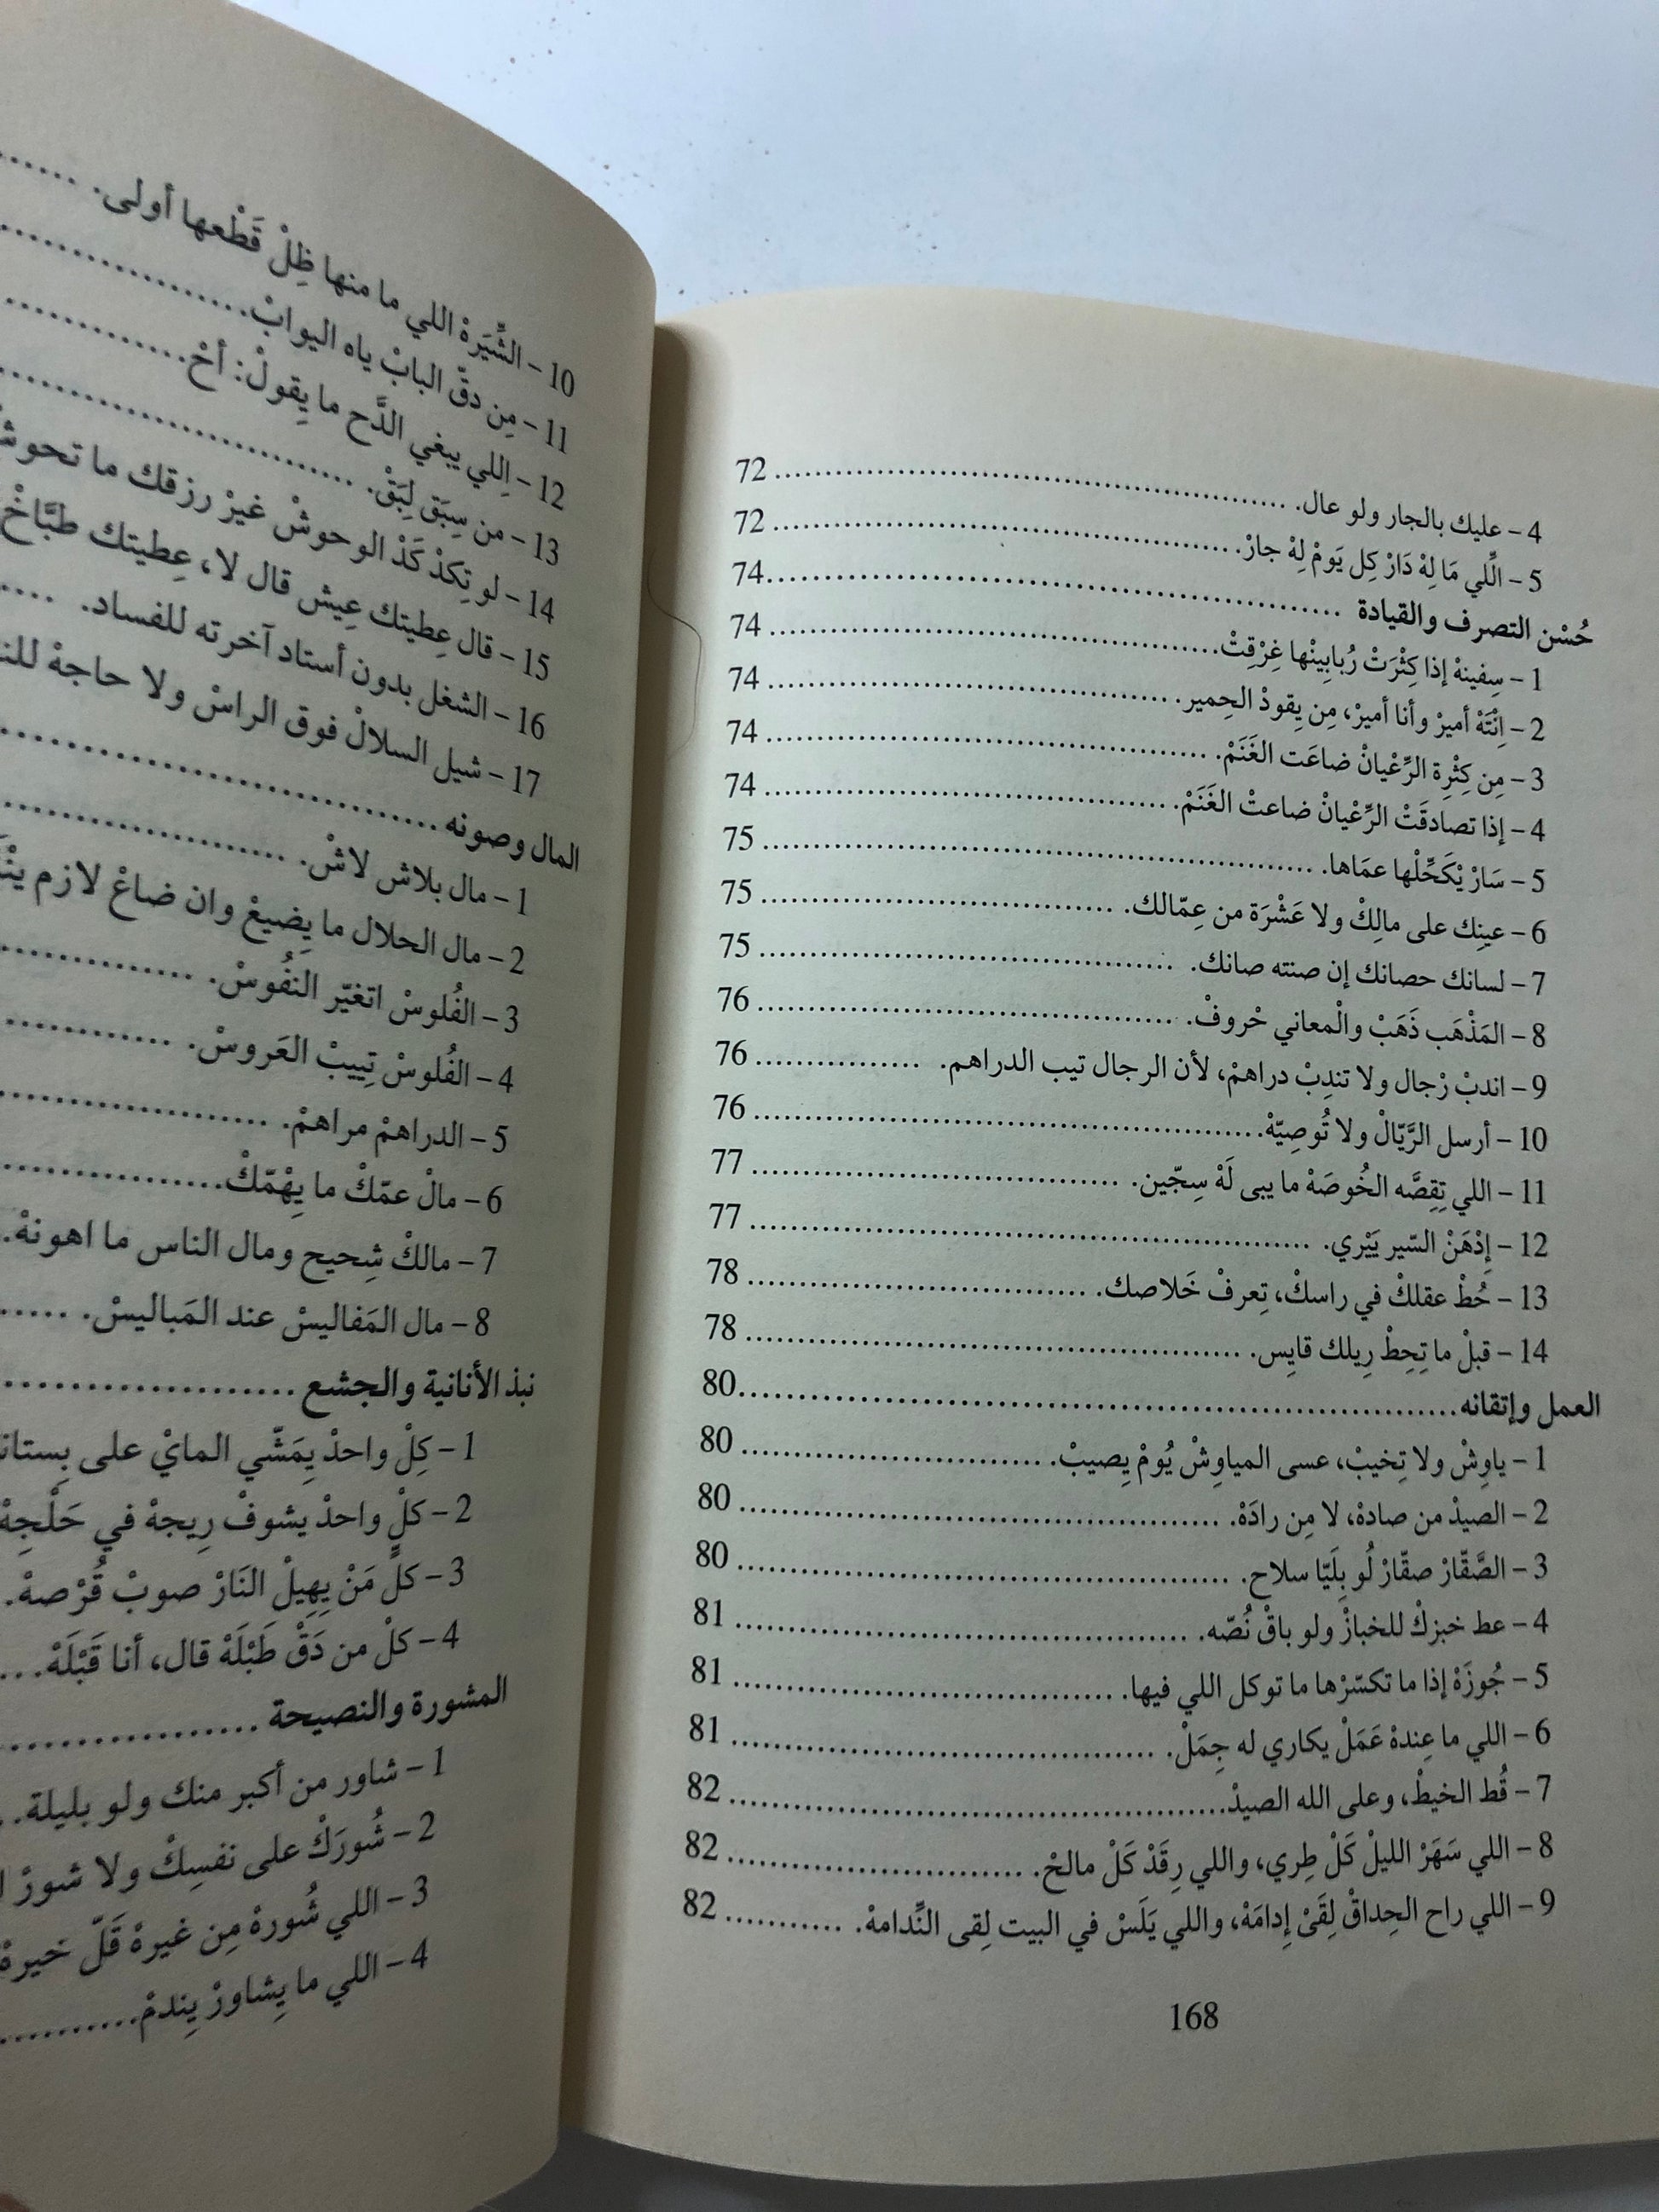 4 – عليك بالجار ولو عال. .......... 72
5 – الِّلي مَا لِهْ دَارْ كِل يَومْ لِهْ جارْ. .......... 72
حُسْن التصرف والقيادة .......... 74
1 – سِفينهْ إذا كِثْرَتْ رُبابِينْها غِرْقِتْ. .......... 74
2 – اِنْتَهْ أميرْ وأنا أميرْ، مِن يِقودْ الحِمير. .......... 74
3 – مِن كِثْرِة الرِّعْيانْ ضاعَت الغَنَمْ. .......... 74
4 – إذا تصادقَتْ الرِّعْيانْ ضاعتْ الغَنَمْ. .......... 74
5 – سَارْ يْكَحِّلْها عمَاها. .......... 75
6 – عينِك على مالِكْ ولا عَشْرَة من عِمّالك. .......... 75
7 – لسانك حصانك إن صنته صانك. .......... 75
8 – المَذْهَب ذَهَبْ والْمعاني حْروفْ. .......... 76
9 – اندبْ رْجال ولا تندِبْ دراهمْ، لأن الرجال تيب الدراهم. .......... 76
10 – أرسل الرَّيّالْ ولا تُوصِيّهْ. .......... 76
11 – اللي تِقِصَّه الخُوصَهْ ما يبى لَهْ سِجّين. .......... 77
12 – إِدْهَنْ السّير يَيْري. .......... 77
13 – حُطْ عقلكْ في راسكْ، تِعرفْ خَلاصك. .......... 78
14 – قبلْ ما تِحِطْ رِيلك قايِس. .......... 78
العمل وإتقانه .......... 80
1 – ياوِشْ ولا تِخيبْ، عسى المياوِشْ يُومْ يِصيبْ. .......... 80
2 – الصيدْ من صادهْ، لا مِن رادَهْ. .......... 80
3 – الصَّقّارْ صقّارْ لُو بِلَيّا سلاح. .......... 80
4 – عط خبزكْ للخبازْ ولو باقْ نُصّه. .......... 81
5 – جُوزَهْ إذا ما تكسّرْها ما توكل اللي فيها. .......... 81
6 – اللي ما عِندهْ عَمَلْ يكاري له جِمَلْ. .......... 81
7 – قُط الخيطْ، وعلى الله الصيدْ. .......... 82
8 – اللي سَهَرْ الليلْ كَلْ طِري، واللي رِقَدْ كَلْ مالحْ. .......... 82
9 – اللي راح الحِداقْ لِقَىْ إِدامَهْ، واللي يَلَسْ في البيت لِقى النِّدامهْ. .......... 82
168
10 – الشِّيَرهْ اللي ما منها ظِلْ قَطْعها أولى. ..........
11 – مِن دقّ البابْ ياه اليوابْ. ..........
12 – اِللي يبغي الدَّح ما يِقولْ: أحْ. ..........
13 – من سِبَق لِبَقْ. ..........
14 – لو تِكدْ كَدْ الوحوشْ غيرْ رزقك ما
15 – قال عِطيتك عِيش قال لا، عِطيتك طبَّاخْ
16 – الشغل بدون أستاد آخرته للفساد. ....
17 – شيل السلالْ فوق الراسْ ولا حاجهْ
المال وصونه ..........
1 – مال بلاش لاشْ. ..........
2 – مال الحلال ما يِضيعْ وان ضاعْ لازم
3 – الفُلوسْ اتغيّر النفُوسْ. ..........
4 – الفُلوسْ تِييبْ العَروسْ. ..........
5 – الدراهمْ مراهمْ. ..........
6 – مالْ عمّكْ ما يِهْمّكْ. ..........
7 – مالكْ شِحيح ومال الناس ما اهونهْ.
8 – مال المَفاليسْ عند المَباليسْ. ......
نبذ الأنانية والجشع ..........
1 – كِلْ واحدْ يِمَشّي المايْ على
2 – كلْ واحدْ يشوفْ رِيجهْ في حَلْجِهْ
3 – كلْ مَنْ يِهِيلْ النَارْ صوبْ قُرْصهْ.
4 – كلْ من دَقْ طَبْلَهْ قال، أنا قَبْلَهْ. ...
المشورة والنصيحة ..........
1 – شاور من أكبر منك ولو بليلة. ..
2 – شُورَكْ على نفسِكْ ولا شورْ
3 – اللي شُورهْ مِن غيرهْ قَلّ خيرهْ
4 – اللي ما يِشاورْ يِندمْ. ..........